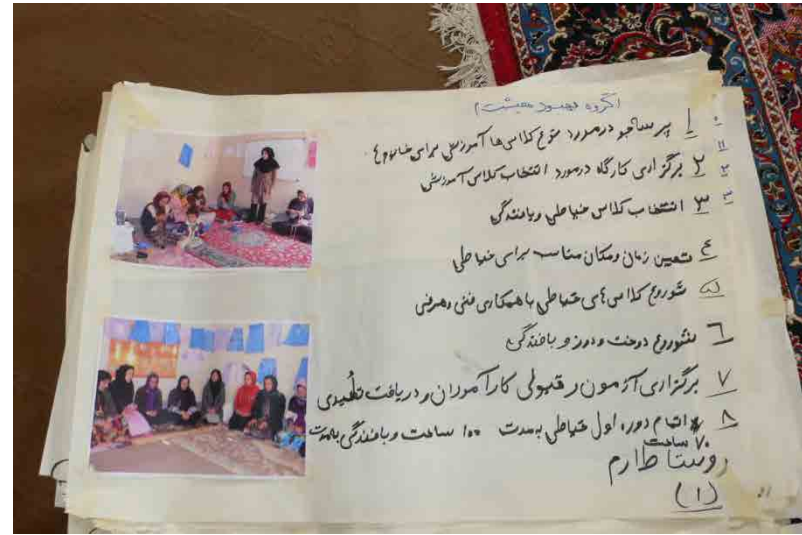 (گروه بهبود معیشت)
۱ پرسشجو درمورد نوع کلاس ها آموزشی برای خانوم ها
۲ برگزاری کارگاه درمورد انتخاب کلاس آموزشی
۳ انتخاب کلاس خیاطی و بافندگی
٤ تعیین زمان ومکان مناسب برای خیاطی
۵ شوروع کلاس های خیاطی با همکاری فنی وحرفی
٦ شوروع دوخت ودوز و بافندگی
۷ برگزاری آزمون و قبولی کارآموزان و دریافت
۸ اتمام دوره اول خیاطی بمدت ۱۰۰ ساعت و بافندگی بمدت
۷۰ ساعت
روستا طارم
(۱)